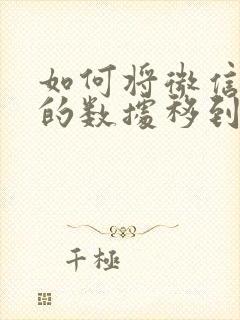 如何将微信
的数据移到
千極